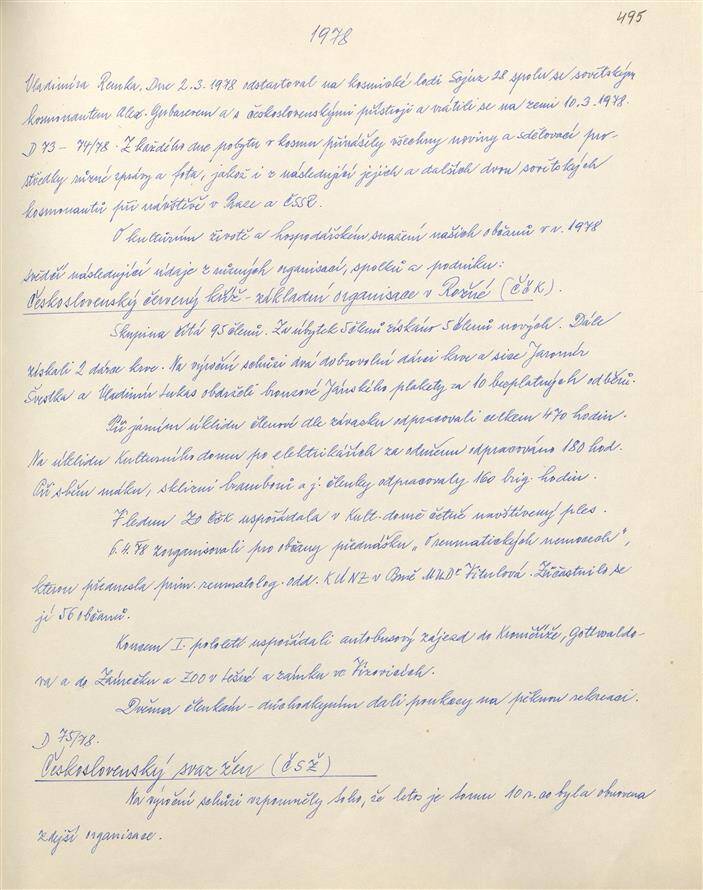 495
1978
Vladimíra Remka. Dne 2.3.1978 odstartoval na kosmické lodi Sojuz 28 spolu se sovětským
kosmonautem Alex. Gubaserem a s československými přístroji a vrátili se na zemi 10.3.1978.
D 73 - 74/78. Z každého dne pobytu v kosmu přinášely všechny noviny a sdělovací pro-
středky různé zprávy a fota, jakož i z následující jejich a dalších dvou sovětských
kosmonautů při návštěvě v Praze a ČSSR.
O kulturním životě a hospodářském snažení našich občanů v r. 1978
svědčí následující údaje z různých organisací, spolků a podniku:
Československý červený kříž - základní organisace v Rožné (ČČK).
Skupina čítá 95 členů. Za úbytek 5 členů získáno 5 členů nových. Dále
získali 2 dárce krve. Na výroční schůzi dva dobrovolní dárci krve a sice Jaromír
Švestka a Vladimír Lukas obdrželi bronzové Jánského plakety za 10 bezplatných odběrů.
Při jarním úklidu členové dle závazku odpracovali celkem 470 hodin.
Na úklidu Kulturního domu po elektrikářích za odměnu odpracováno 180 hod.
Při sběru máku, sklizni bramborů a j. členky odpracovaly 160 brig. hodin.
V lednu ZO ČČK uspořádala v Kult. domě četně navštívený ples.
6.4.78 zorganisovali pro občany přednášku "O reumatických nemocech",
kterou přednesla prim. reumatolog. odd. KÚNZ v Brně MUDr Vitulová. Zúčastnilo se
jí 56 občanů.
Koncem I. pololetí uspořádali autobusový zájezd do Kroměříže, Gottwaldo-
va a do Zámečku a ZOO v Lešné a zámku ve Vizovicích.
Dvěma členkám - důchodkyním dali poukazy na pěknou rekreaci.
D 75/78.
Československý svaz žen (ČSŽ)
Na výroční schůzi vzpomněly toho, že letos je tomu 10 r. co byla obnovena
zdejší organisace.